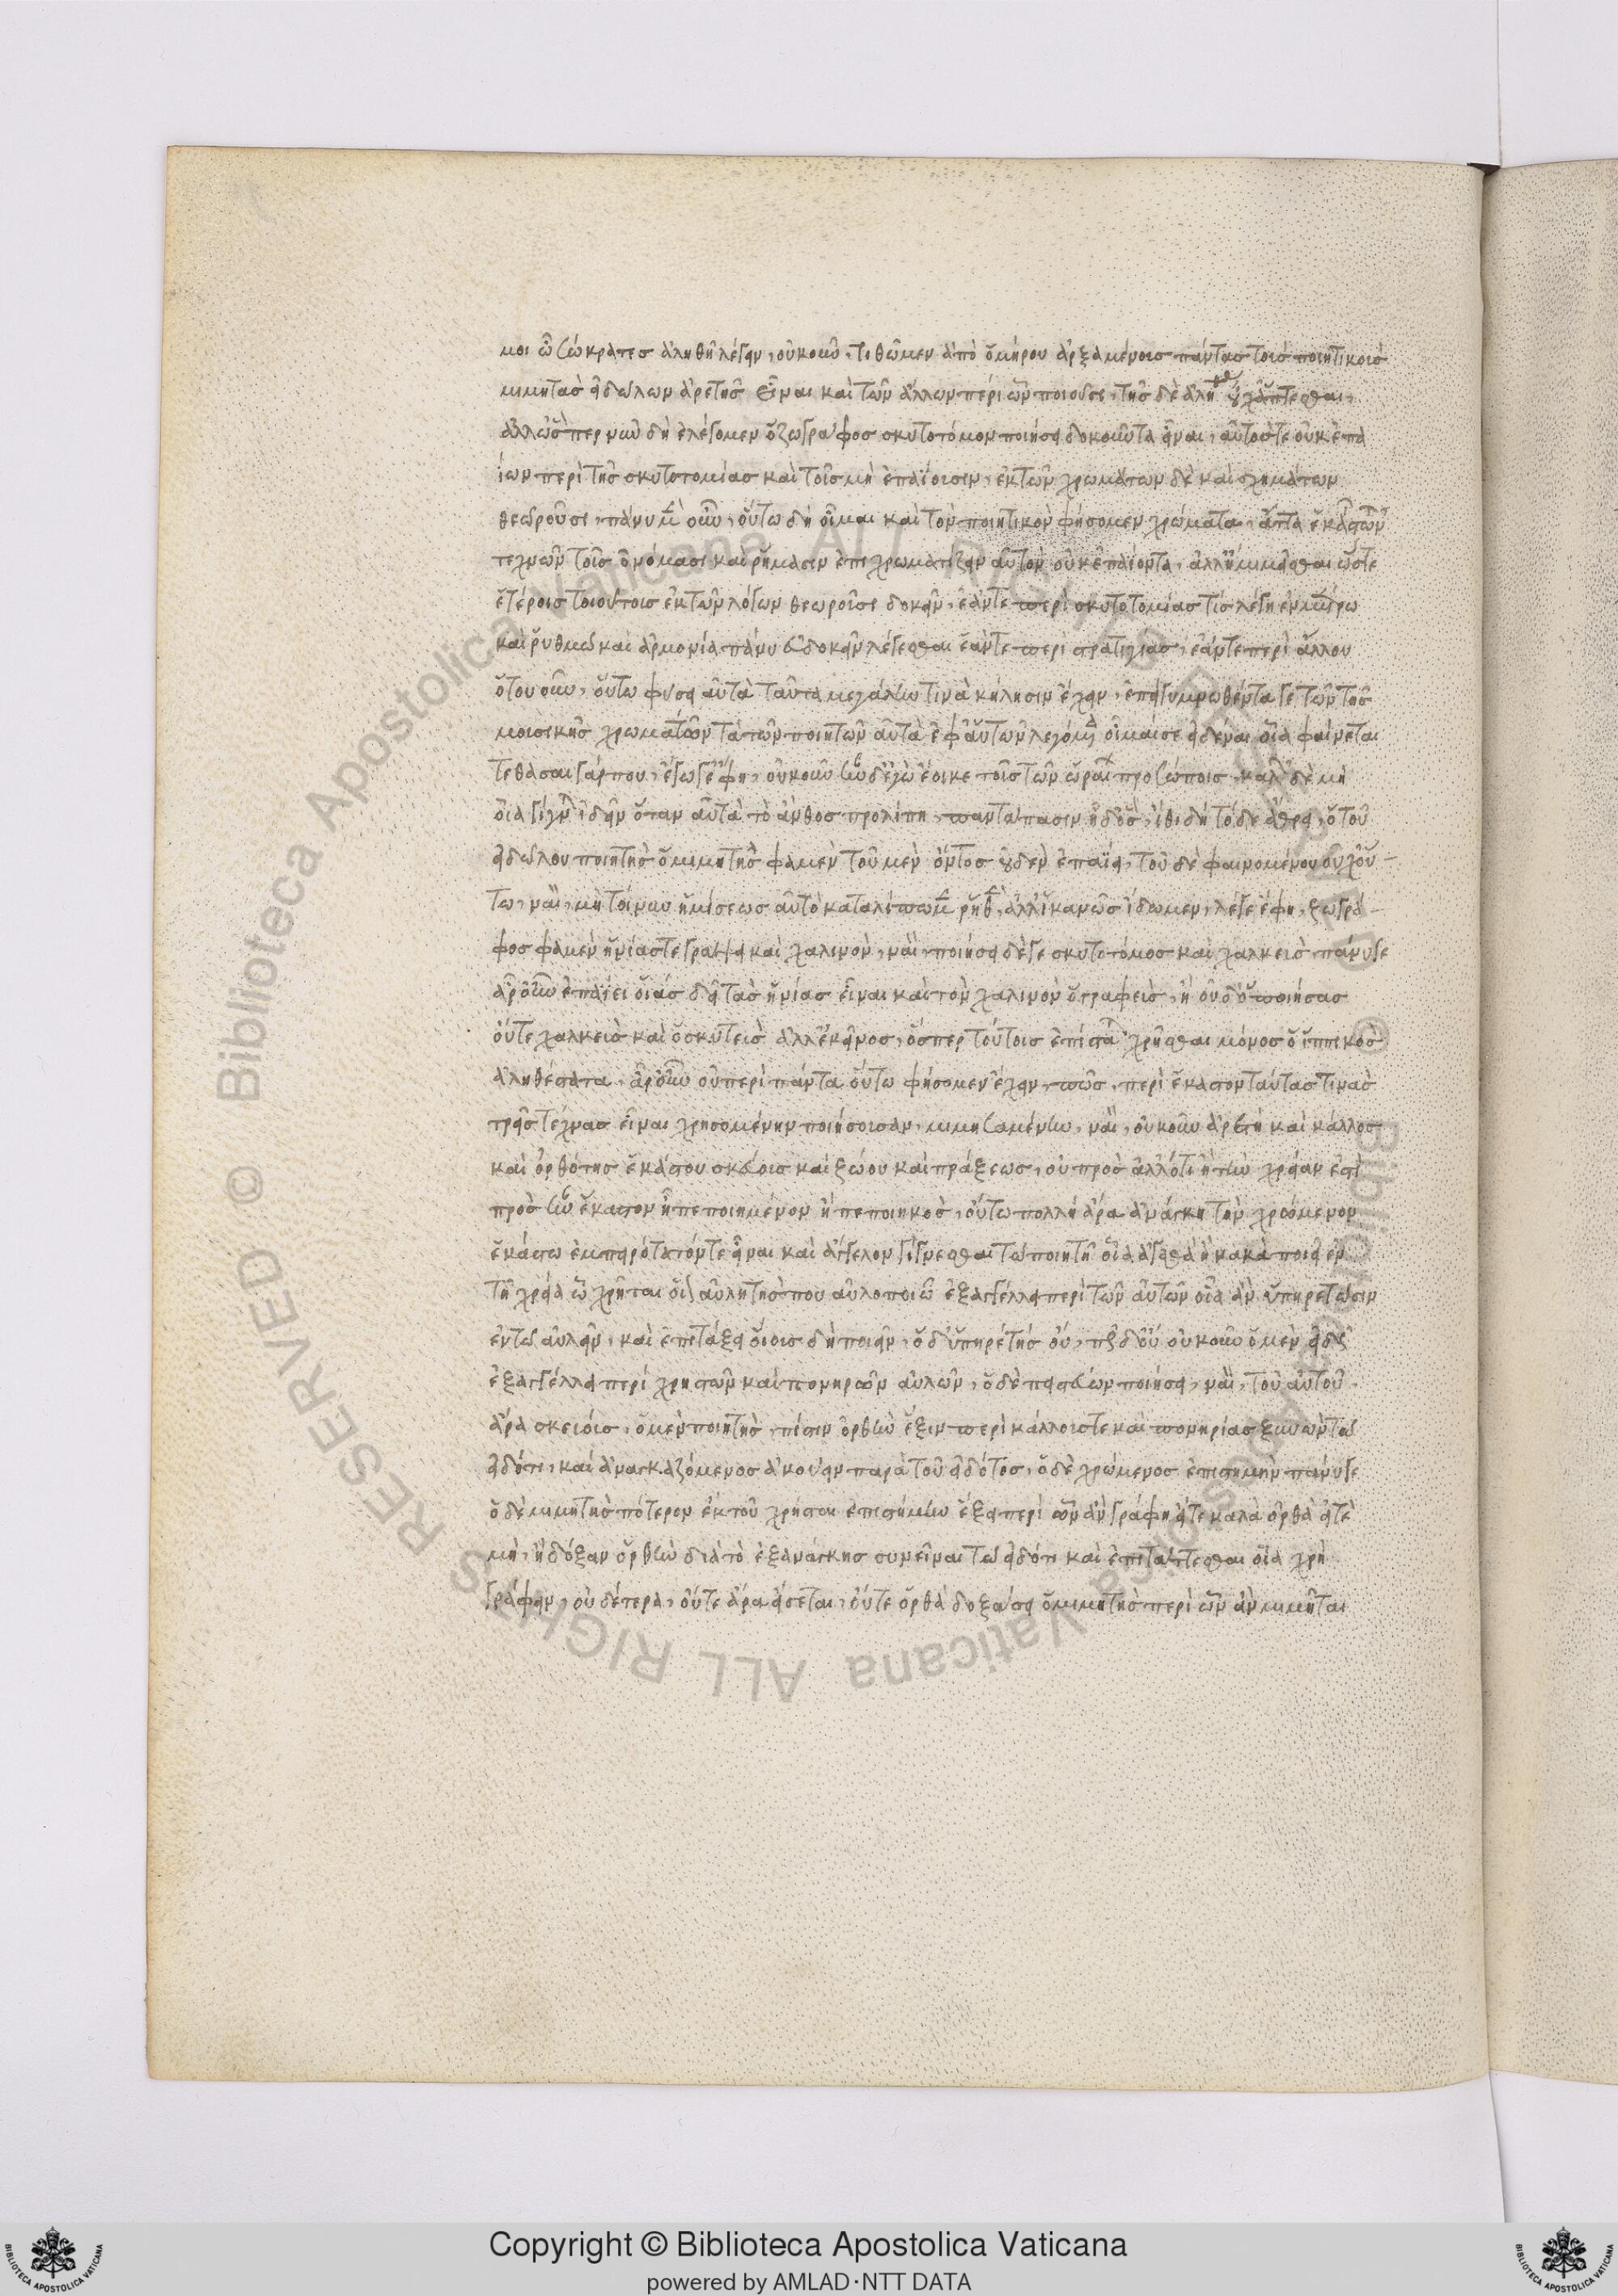 μοι ὦ σώκρατεσ ἀληθῆ λέγειν, οὐκοῦν, τιθῶμεν ἀπὸ ὁμήρου ἀρξαμένουσ πάντασ τοὺσ ποιητικοὺσ
μιμητὰσ εἰδώλων ἀρετῆσ εἶναι καὶ τῶν ἄλλων περὶ ὧν ποιοῦσι, τῆσ δὲ ἀλη οὐχ ἅπτεσθαι,
ἀλλ' ὥσπερ νῦν δὴ ἐλέγομεν ὁ ζωγράφοσ σκυτοτόμον ποιήσει δοκοῦντα εἶναι, αὐτόστε οὐκ ἐπα
ίων περὶ τῆσ σκυτοτομίασ καὶ τοῖσ μὴ ἐπαΐουσιν, ἐκ τῶν χρωμάτων δὲ καὶ σχημάτων
θεωροῦσι, πάνυ μὲν οὖν, οὕτω δὴ οἶμαι καὶ τὸν ποιητικὸν φήσομεν χρώματα, ἄττα ἑκάστων
τεχνῶν τοῖσ ὀνόμασι καὶ ῥήμασιν ἐπιχρωματίζειν αὐτὸν οὐκ ἐπαΐοντα, ἀλλ' ἢ μιμεῖσθαι ὥστε
ἑτέροισ τοιούτοισ ἐκ τῶν λόγων θεωροῦσι δοκεῖν, ἐάντε περὶ σκυτοτομίασ τίσ λέγη ἐν μέτρω
καὶ ῥυθμῶ καὶ ἁρμονία πάνυ εὖ δοκεῖν λέγεσθαι ἐάντε περὶ στρατηγίασ, ἐάντε περὶ ἄλλου
ὅτου οὖν, οὕτω φύσει αὐτὰ ταῦτα μεγάλην τινὰ κήλησιν ἔχειν, ἐπεὶ γυμνωθέντα γε τῶν τῆσ
μουσικῆσ χρωμάτων τὰ τῶν ποιητῶν αὐτὰ ἐφ' αὑτῶν λεγόμενα οἶμαί σε εἰδέναι οἷα φαίνεται
τεθέασαι γάρ που, ἔγωγ' ἔφη, οὐκοῦν ἦν δ' ἐγὼ ἔοικε τοῖσ τῶν ὡραίων προσώποισ καλῶν δὲ μὴ
οἷα γίγνεται ἰδεῖν ὅταν αὐτὰ τὸ ἄνθοσ προλίπη, παντάπασιν ἦ δ' ὅσ, ἴθι δὴ τόδε ἄθρει, ὁ τοῦ
εἰδώλου ποιητὴσ ὁ μιμητὴσ φαμὲν τοῦ μὲν ὄντοσ οὐδὲν ἐπαΐει, τοῦ δὲ φαινομένου οὐχ οὕ
τω, ναί, μὴ τοίνυν ἡμίσεωσ αὐτὸ καταλίπωμεν ῥηθὲν, ἀλλ' ἱκανῶσ ἴδωμεν, λέγε ἔφη, ζωγρά
φοσ φαμὲν ἡνίασ τε γράψει καὶ χαλινὸν, ναί, ποιήσει δέ γε σκυτοτόμοσ καὶ χαλκεὺσ πάνυ γε
ἆρ' οὖν ἐπαΐει οἵασ δεῖ τὰσ ἡνίασ εἶναι καὶ τὸν χαλινὸν ὁ γραφεὺσ, ἢ οὐδ' ὁ ποιήσασ
ὅτε χαλκεὺσ καὶ ὁ σκυτεὺσ ἀλλ' ἐκεῖνοσ, ὅσπερ τούτοισ ἐπίσταται χρῆσθαι μόνοσ ὁ ἱππικὸσ
ἀληθέστατα, ἆρ' οὖν οὐ περὶ πάντα οὕτω φήσομεν ἔχειν, πῶσ, περὶ ἕκαστον ταύτασ τινὰσ
τρεῖσ τέχνασ εἶναι χρησομένην ποιήσουσαν, μιμησομένην, ναί, οὐκοῦν ἀρετὴ καὶ κάλλοσ
καὶ ὀρθότησ ἑκάστου σκεύουσ καὶ ζώου καὶ πράξεωσ, οὐ πρὸσ ἄλλό τι ἢ τὴν χρείαν ἐστὶ
πρὸσ ἣν ἕκαστον ἢ πεποιημένον ἢ πεφυκὸσ, οὕτω πολλὴ ἄρα ἀνάγκη τὸν χρώμενον
ἑκάστω ἐμπειρότατόν τε εἶναι καὶ ἄγγελον γίγνεσθαι τῶ ποιητῆ οἷα ἀγαθὰ ἢ κακὰ ποιεῖ ἐν
τῆ χρεία ὧ χρῆται οἷον αὐλητὴσ που αὐλοποιῶ ἐξαγγέλλει περὶ τῶν αὐτῶν οἷα ἂν ὑπηρετῶσιν
ἐν τῶ αὐλεῖν, καὶ ἐπιτάξει οἵουσ δὴ ποιεῖν, ὁ δ' ὑπηρετήσ οὐ, πῶσ δ' οὔ οὐκοῦν ὁ μὲν εἰδὼσ
ἐξαγγέλλει περὶ χρηστῶν καὶ πονηρῶν αὐλῶν, ὁ δὲ πιστεύων ποιήσει, ναί, τοῦ αὐτοῦ
ἄρα σκεύουσ, ὁ μὲν ποιητὴσ, πίστιν ὀρθὴν ἕξιν περὶ κάλλουστε καὶ πονηρίασ ξυνὼν τῶ
εἰδότι, καὶ ἀναγκαζόμενοσ ἀκούειν παρὰ τοῦ εἰδότοσ, ὁ δὲ χρώμενοσ ἐπιστήμην πάνυ γε
ὁ δὲ μιμητὴσ πότερον ἐκ τοῦ χρῆσθαι ἐπιστήμην ἕξει περὶ ὧν ἂν γράφη εἴτε καλὰ ὀρθὰ εἴτε
μὴ, ἢ δόξαν ὀρθὴν διὰ τὸ ἐξ ἀνάγκησ συνεῖναι τῶ εἰδότι καὶ ἐπιτάττεσθαι οἷα χρὴ
γράφειν, οὐδέτερα, οὔτε ἄρα εἴσεται, οὔτε ὀρθὰ δοξάσει ὁ μιμητὴσ περὶ ὧν ἂν μιμῆται
Copyright © Biblioteca Apostolica Vaticana
powered by AMLAD·NTT DATA